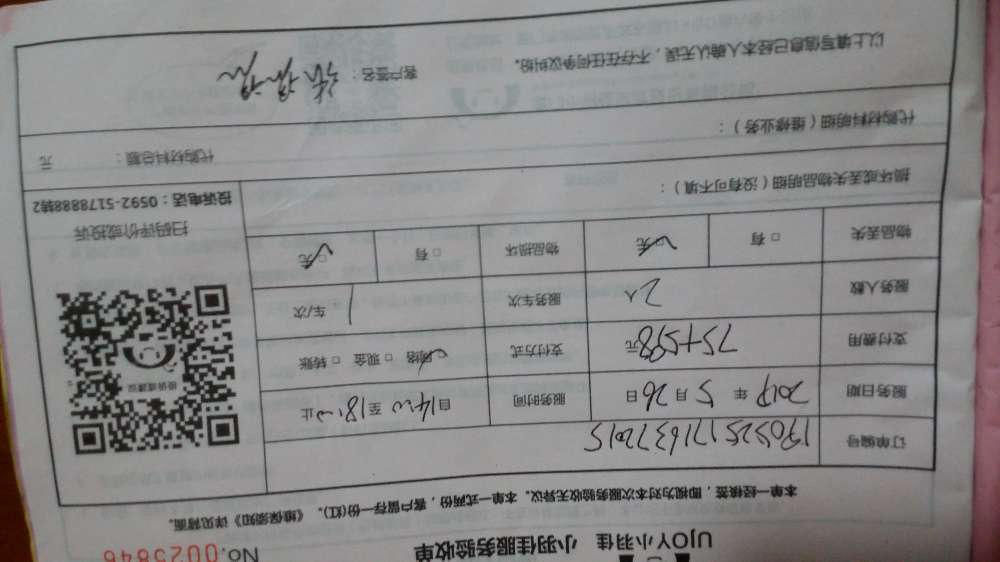 UJOY小羽佳 小羽佳服务验收单 No.0025846
本单一经核签，即视为对本次服务验收无异议。本单一式两份，客户留存一份(红)。《维保须知》详见背面。
订单编号 1905251716372015
服务日期 2019 年 5 月 26 日 服务时间 自14:00 至 18:00 止
支付费用 75+598 元 支付方式 ☑网络 □ 现金 □ 转账
服务人数 2 人 服务车次 1 车/次
物品丢失 □ 有 ☑无 物品损坏 □ 有 ☑无
提供建议
扫码评价或投诉
投诉电话：0592-5178888转2
损坏或丢失物品明细（没有可不填）：
代购材料明细（维修业务）： 代购材料总额： 元
以上填写信息已经本人确认无误，不存在任何争议纠纷。 客户签名：